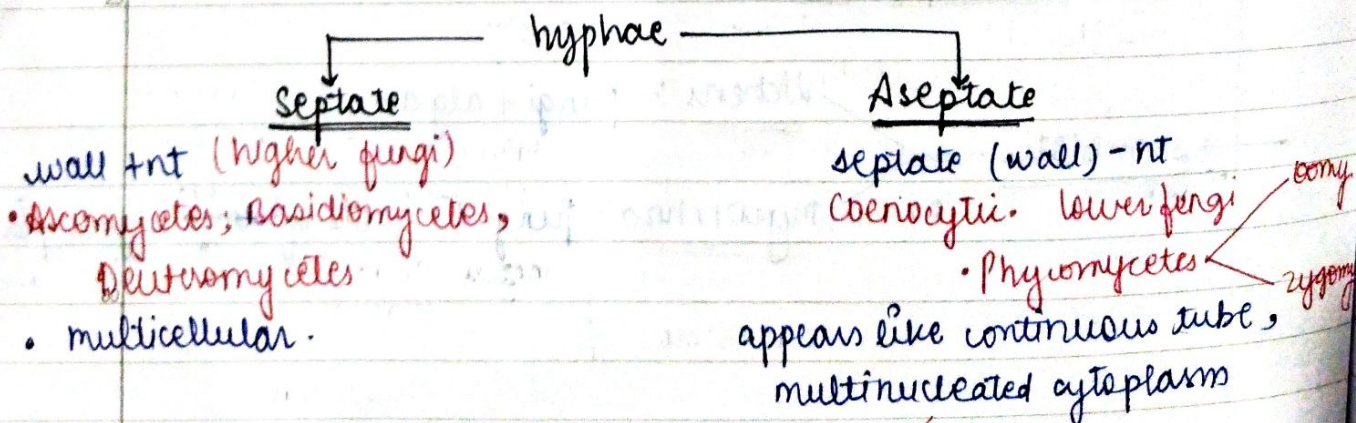 hyphae
Septate
Aseptate
wall +nt (higher fungi)
• Ascomycetes, Basidiomycetes,
Deuteromycetes
• multicellular.
septate (wall) - nt
Coenocytic. lower fungi
oomy
• Phycomycetes
zygomy
appears like continuous tube,
multinucleated cytoplasm